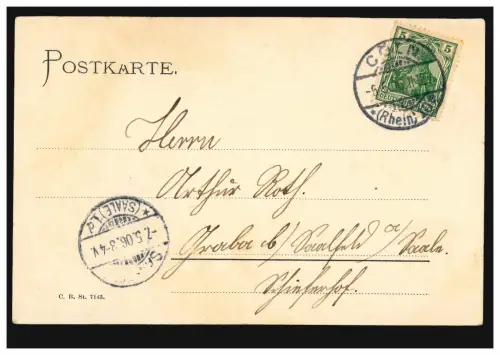 POSTKARTE.
5 5
CÖLN
(Rhein)
Herrn
Arthur Roth.
Graba b/ Saalfeld a/Saale.
Schieferhof.
(SAALE)
-7.5.06.3-4N
C. B. St. 7143.